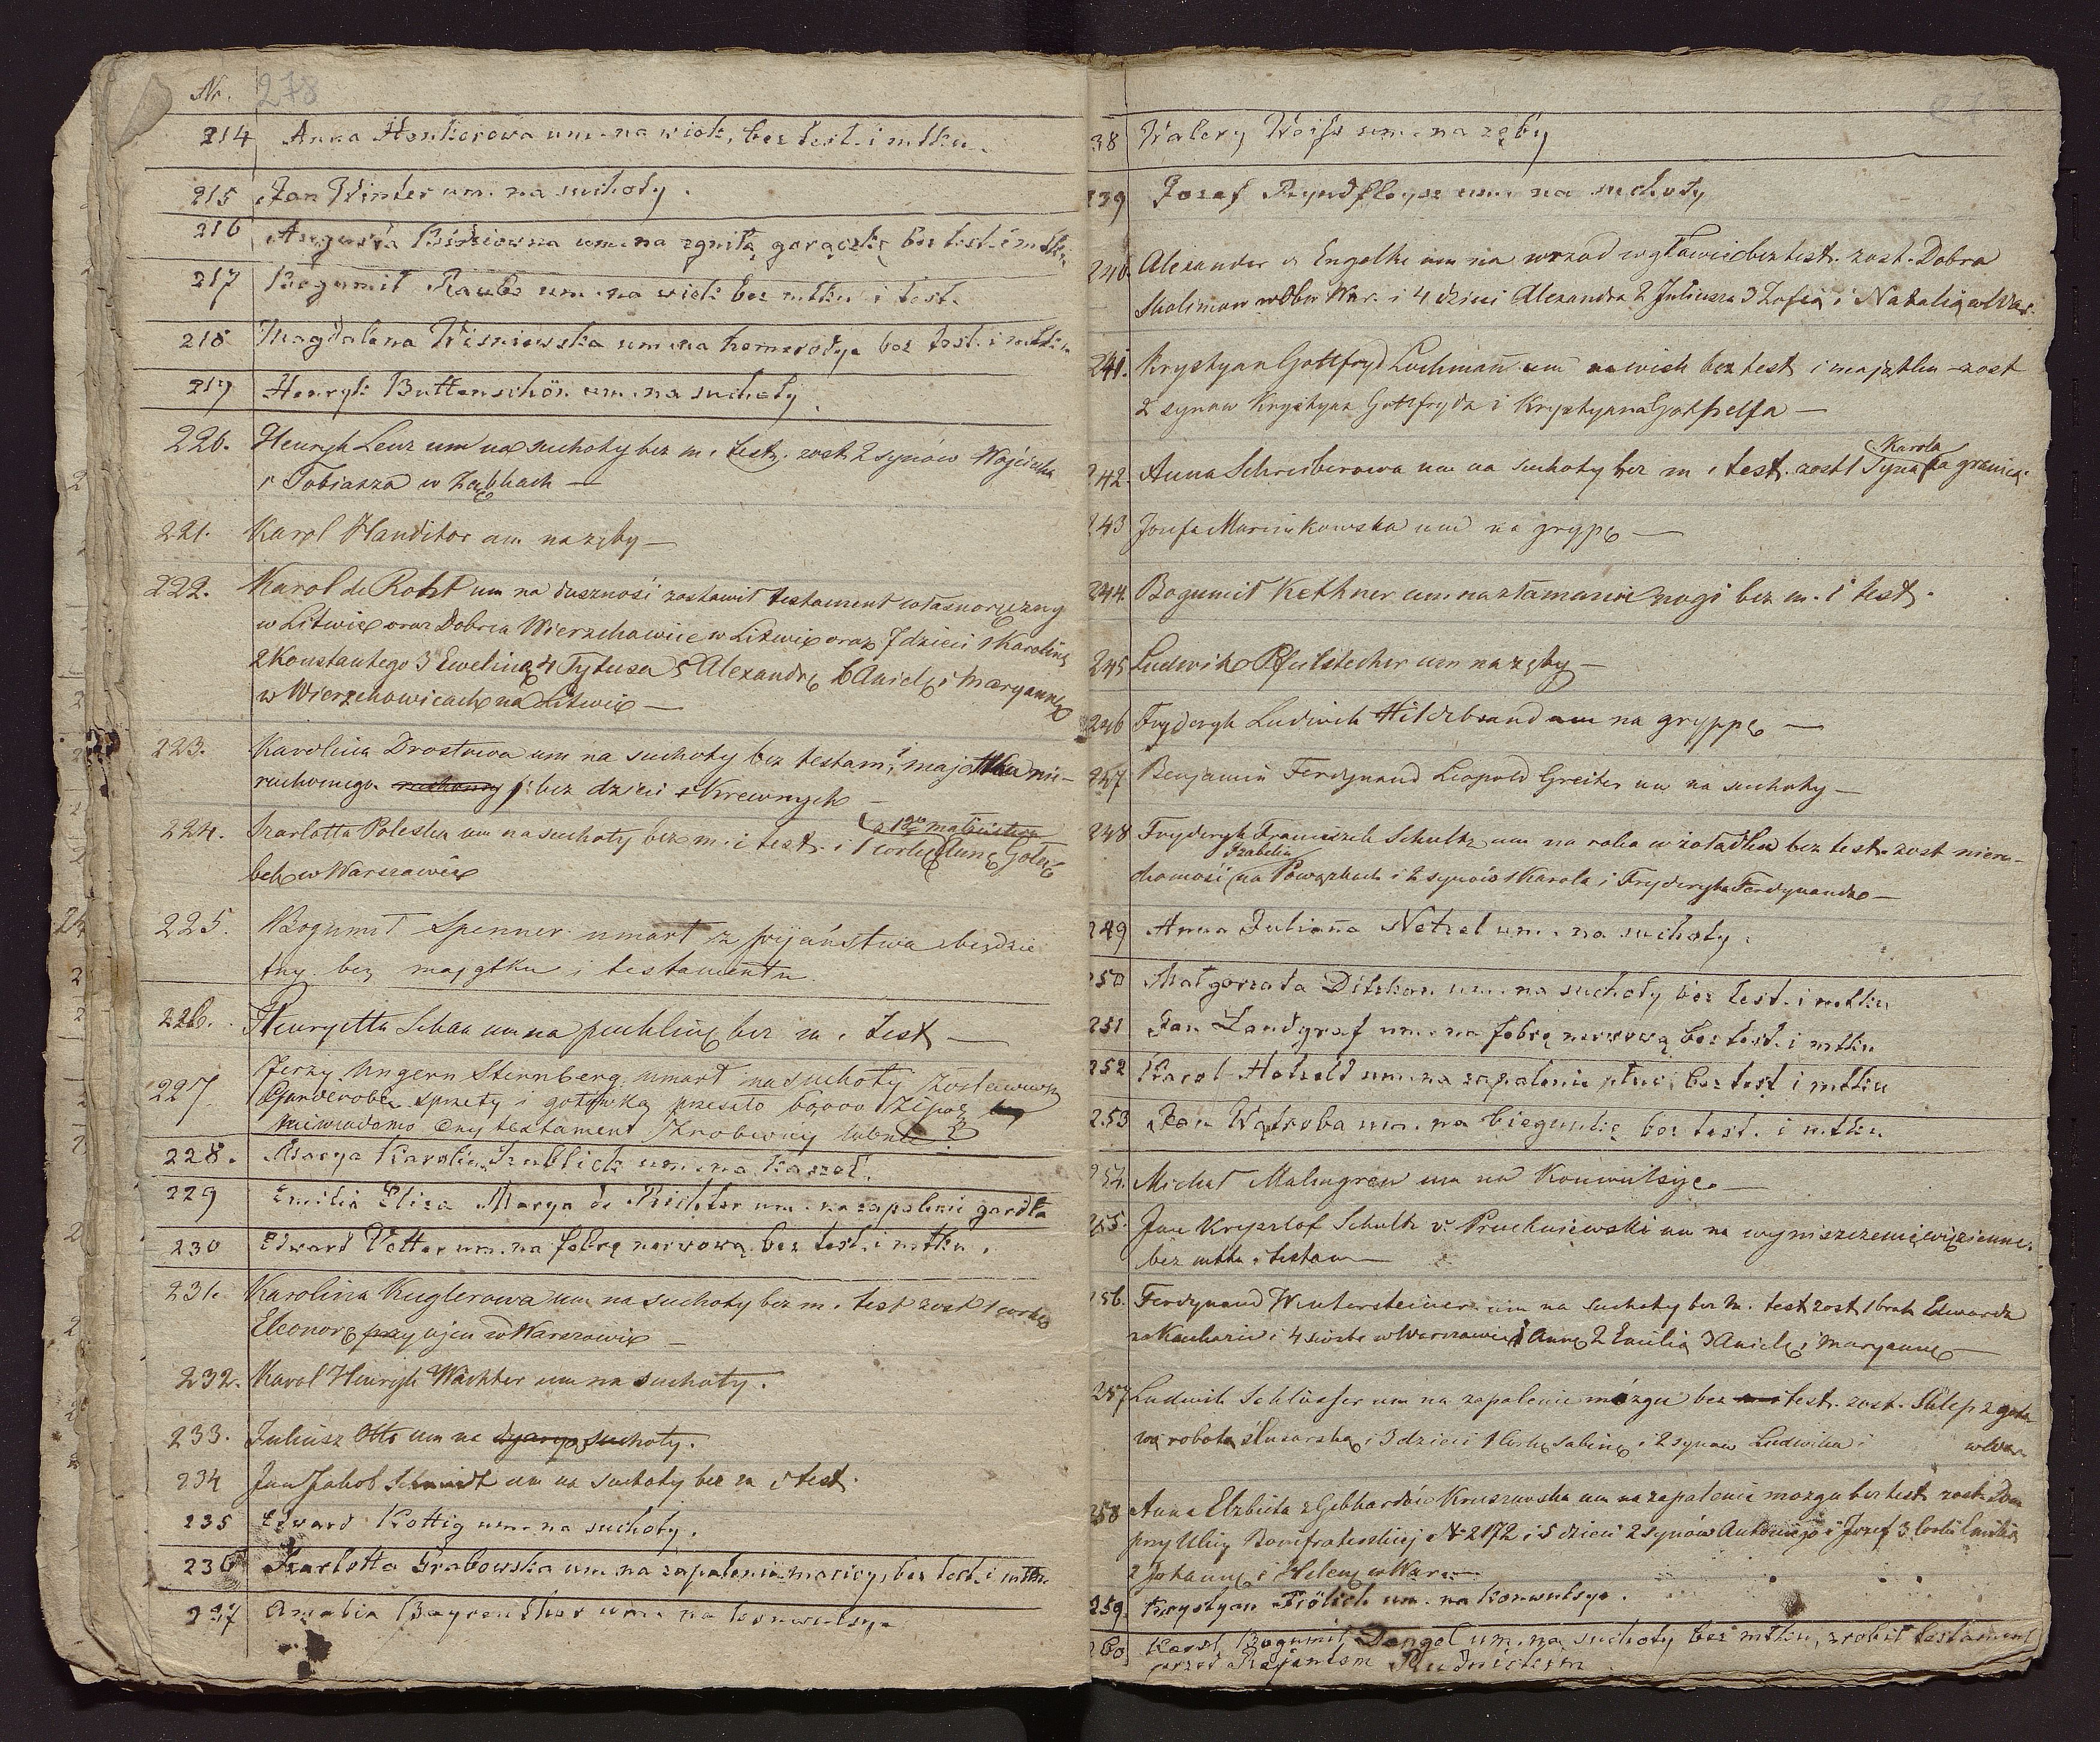 Nr. 278
214 Anna Henkerowa um. na wiek, bez test. i mtku.
215 Jan Winter um. na suchoty.
216 Augusta um. na zgniłą gorączkę bez test. i mtku
217 Bogumił Raube um. na wiek bez mtku i test.
218 Magdalena Wisniewska um. na hemorodye bez test. i mtku
219 Henryk Buttenschön um. na suchoty.
220. Henryk Lenz um na suchoty bez m. i test. zost. 2 synów Wojciecha
i Tobiasza w Ząbkach —
221. Karol Handitor um na zęby —
222. Karol de Roht um na duszność zostawił testament własnoręczny
w Litwie oraz Dobra Wierzchowice w Litwie oraz 7 dzieci 1 Karolinę
2 Konstantego 3 Ewelinę 4 Tytusa 5 Alexandrę 6 Anielę i Maryannę
w Wierzchowicach na Litwie —
223. Karolina Drostowa um na suchoty bez testam. i majątku nie-
ruchomego ruchomy i bez dzieci i Krewnych —
224. Szarlotta Poleska um na suchoty bez m. i test. i 1 corkę Annę Gołę- z 1go małżeństwa
bek w Warszawie
225. Bogumił Spenner umarł z pijaństwa bezdzie
tny bez majątku i testamentu
226. Henryetta Schaa um na puchlinę bez m. i test —
227 Jerzy Ungern Sternberg umarł na suchoty zostawiwszy
Garderobę sprzęty i gotówką przeszło 60000 Zlpol.
niewiadomo czy testament zrobiony
228. Marya Karolina Szublick um. na Kaszel.
229 Emilia Eliza Marya de Richter um. na zapalenie gardła
230 Edward Votter um. na febrę nerwową bez test. i mtku.
231. Karolina Kuglerowa um na suchoty bez m. i test zost 1 corkę
Eleonorę przy ojcu w Warszawie —
232. Karol Henryk Wächter um na suchoty.
233. Juliusz Otto um na suchoty.
234 Jan Jakob Schmidt um na suchoty bez m i test.
235 Edward Kottig um. na suchoty.
236 Szarlotta Grabowska um. na zapalenie macicy, bez test. i mtku
237 Amalia um. na konwulsye
38 Walery Weiss um. na zęby
239 Jozef Ryndfleysz um. na suchoty
240. Alexander v Engelke um na wrzod w głowie bez test. zost. Dobra
Skolimow w Obw War. i 4 dzieci Alexandra 2 Juliusza 3 Zofią i Natalią w War.
241. Krystyan Gottfryd Lochmann um na wiek bez test i majątku zost
2 synow Krystyan Gottfryda i Krystyana Gothelfa —
242. Anna Schreiberowa um na suchoty bez m i test. zost 1 Syna Karola za granicą.
243 Jozefa Marcinkowska um na grypę —
244. Bogumił Kethner um na złamanie nogi bez m. i test.
245 Ludwik Pfeilstecher um na zęby —
246 Fryderyk Ludwik Hildebrand um na gryppę —
247 Benjamin Ferdynand Leopold Greiter um na suchoty —
248 Fryderyk Franciszek Schultz um na raka w żołądku bez test. zost nieru-
chomość Izabelin na Powązkach i 2 synów 1 Karola i Fryderyka Ferdynanda —
249 Anna Julianna Netzel um. na suchoty.
250 Małgorzata um. na suchoty bez test. i mtku
251 Jan Landgraf um. na febrę nerwową bez test. i mtku
252 Karol Hatzeld um. na zapalenie płuc, bez test i mtku
253 Jan Wątroba um. na biegunkę bez test. i mtku
254. Michał Malmgren um na Konwulsye —
255. Jan Krysztof Schultz v. Pruchniewski um na wyniszczenie więzienne
bez mtku i testam —
256. Ferdynand Wintersteiner um na suchoty bez m. i test zost 1 brata Edwarda
na Kaukazie i 4 siostr w Warszawie 1 Annę 2 Emilią 3 Anielę i Maryannę —
257 Ludwik Schlösser um na zapalenie mózgu bez test. zost. Sklep z goto-
wą robotą ślusarską i 3 dzieci 1 Corkę Sabinę i 2 synow Ludwika i w War.
258 Anna Elzbieta z Gebhardów Kruszewska um na zapalenie mozgu bez test zost. Dom
przy Ulicy Bonifraterskiej N 2172 i 5 dzieci 2 synów Antoniego i Jozef 3 Corki Emilią
2 Johannę i Helenę w War. —
259. Krystyan Frölich um. na konwulsye.
260 Karol Bogumił Dangel um. na suchoty bez mtku, zrobił testament
przed Rejentem Rudnickim